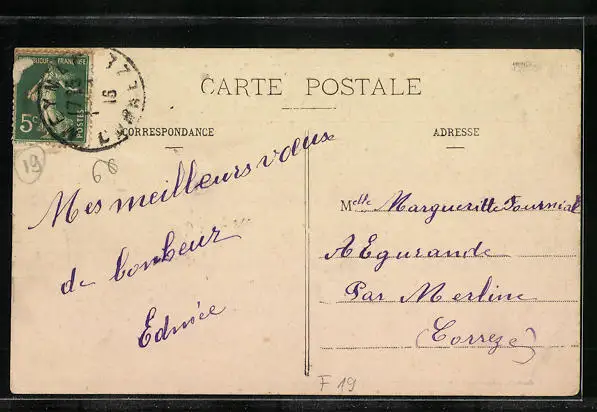 RÉPUBLIQUE FRANÇAISE
5c
POSTES
EYM
17 15
16
CARTE POSTALE
CORRESPONDANCE
ADRESSE
19
68
Mes meilleurs vœux
de bonheur
Edmée
Melle Margueritte Fourniat
A Egurande
Par Merline
(Correze)
F 19